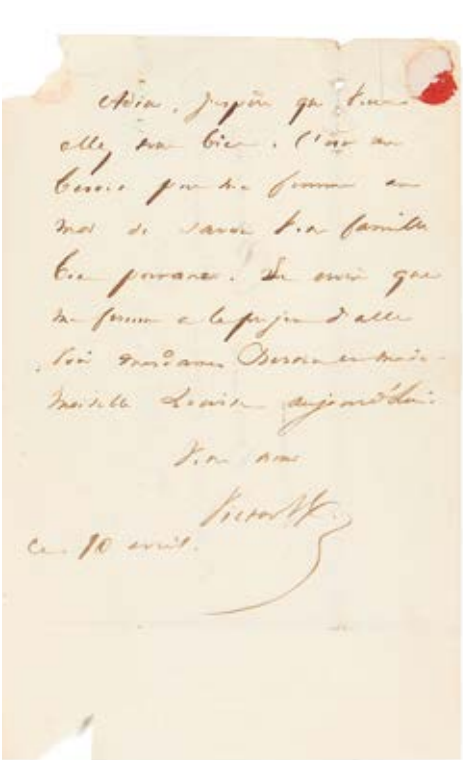 Adieu. J'espère que vous
allez bien. C'est un
besoin pour ma femme et
moi de savoir votre famille
bien portante. Je crois que
ma femme a le projet d'aller
voir mesdames et made-
moiselle Louise aujourd'hui.
Votre ami
Victor H.
Ce 10 avril.